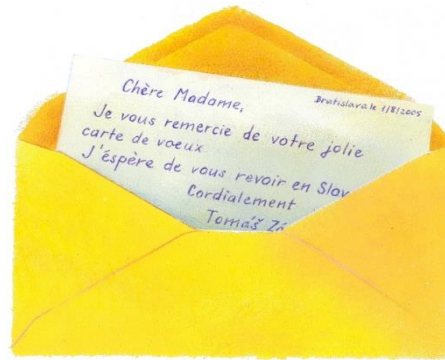 Bratislava le 1/8/2005
Chère Madame,
Je vous remercie de votre jolie
carte de voeux
J'éspère de vous revoir en Slov
Cordialement
Tomáš Zá